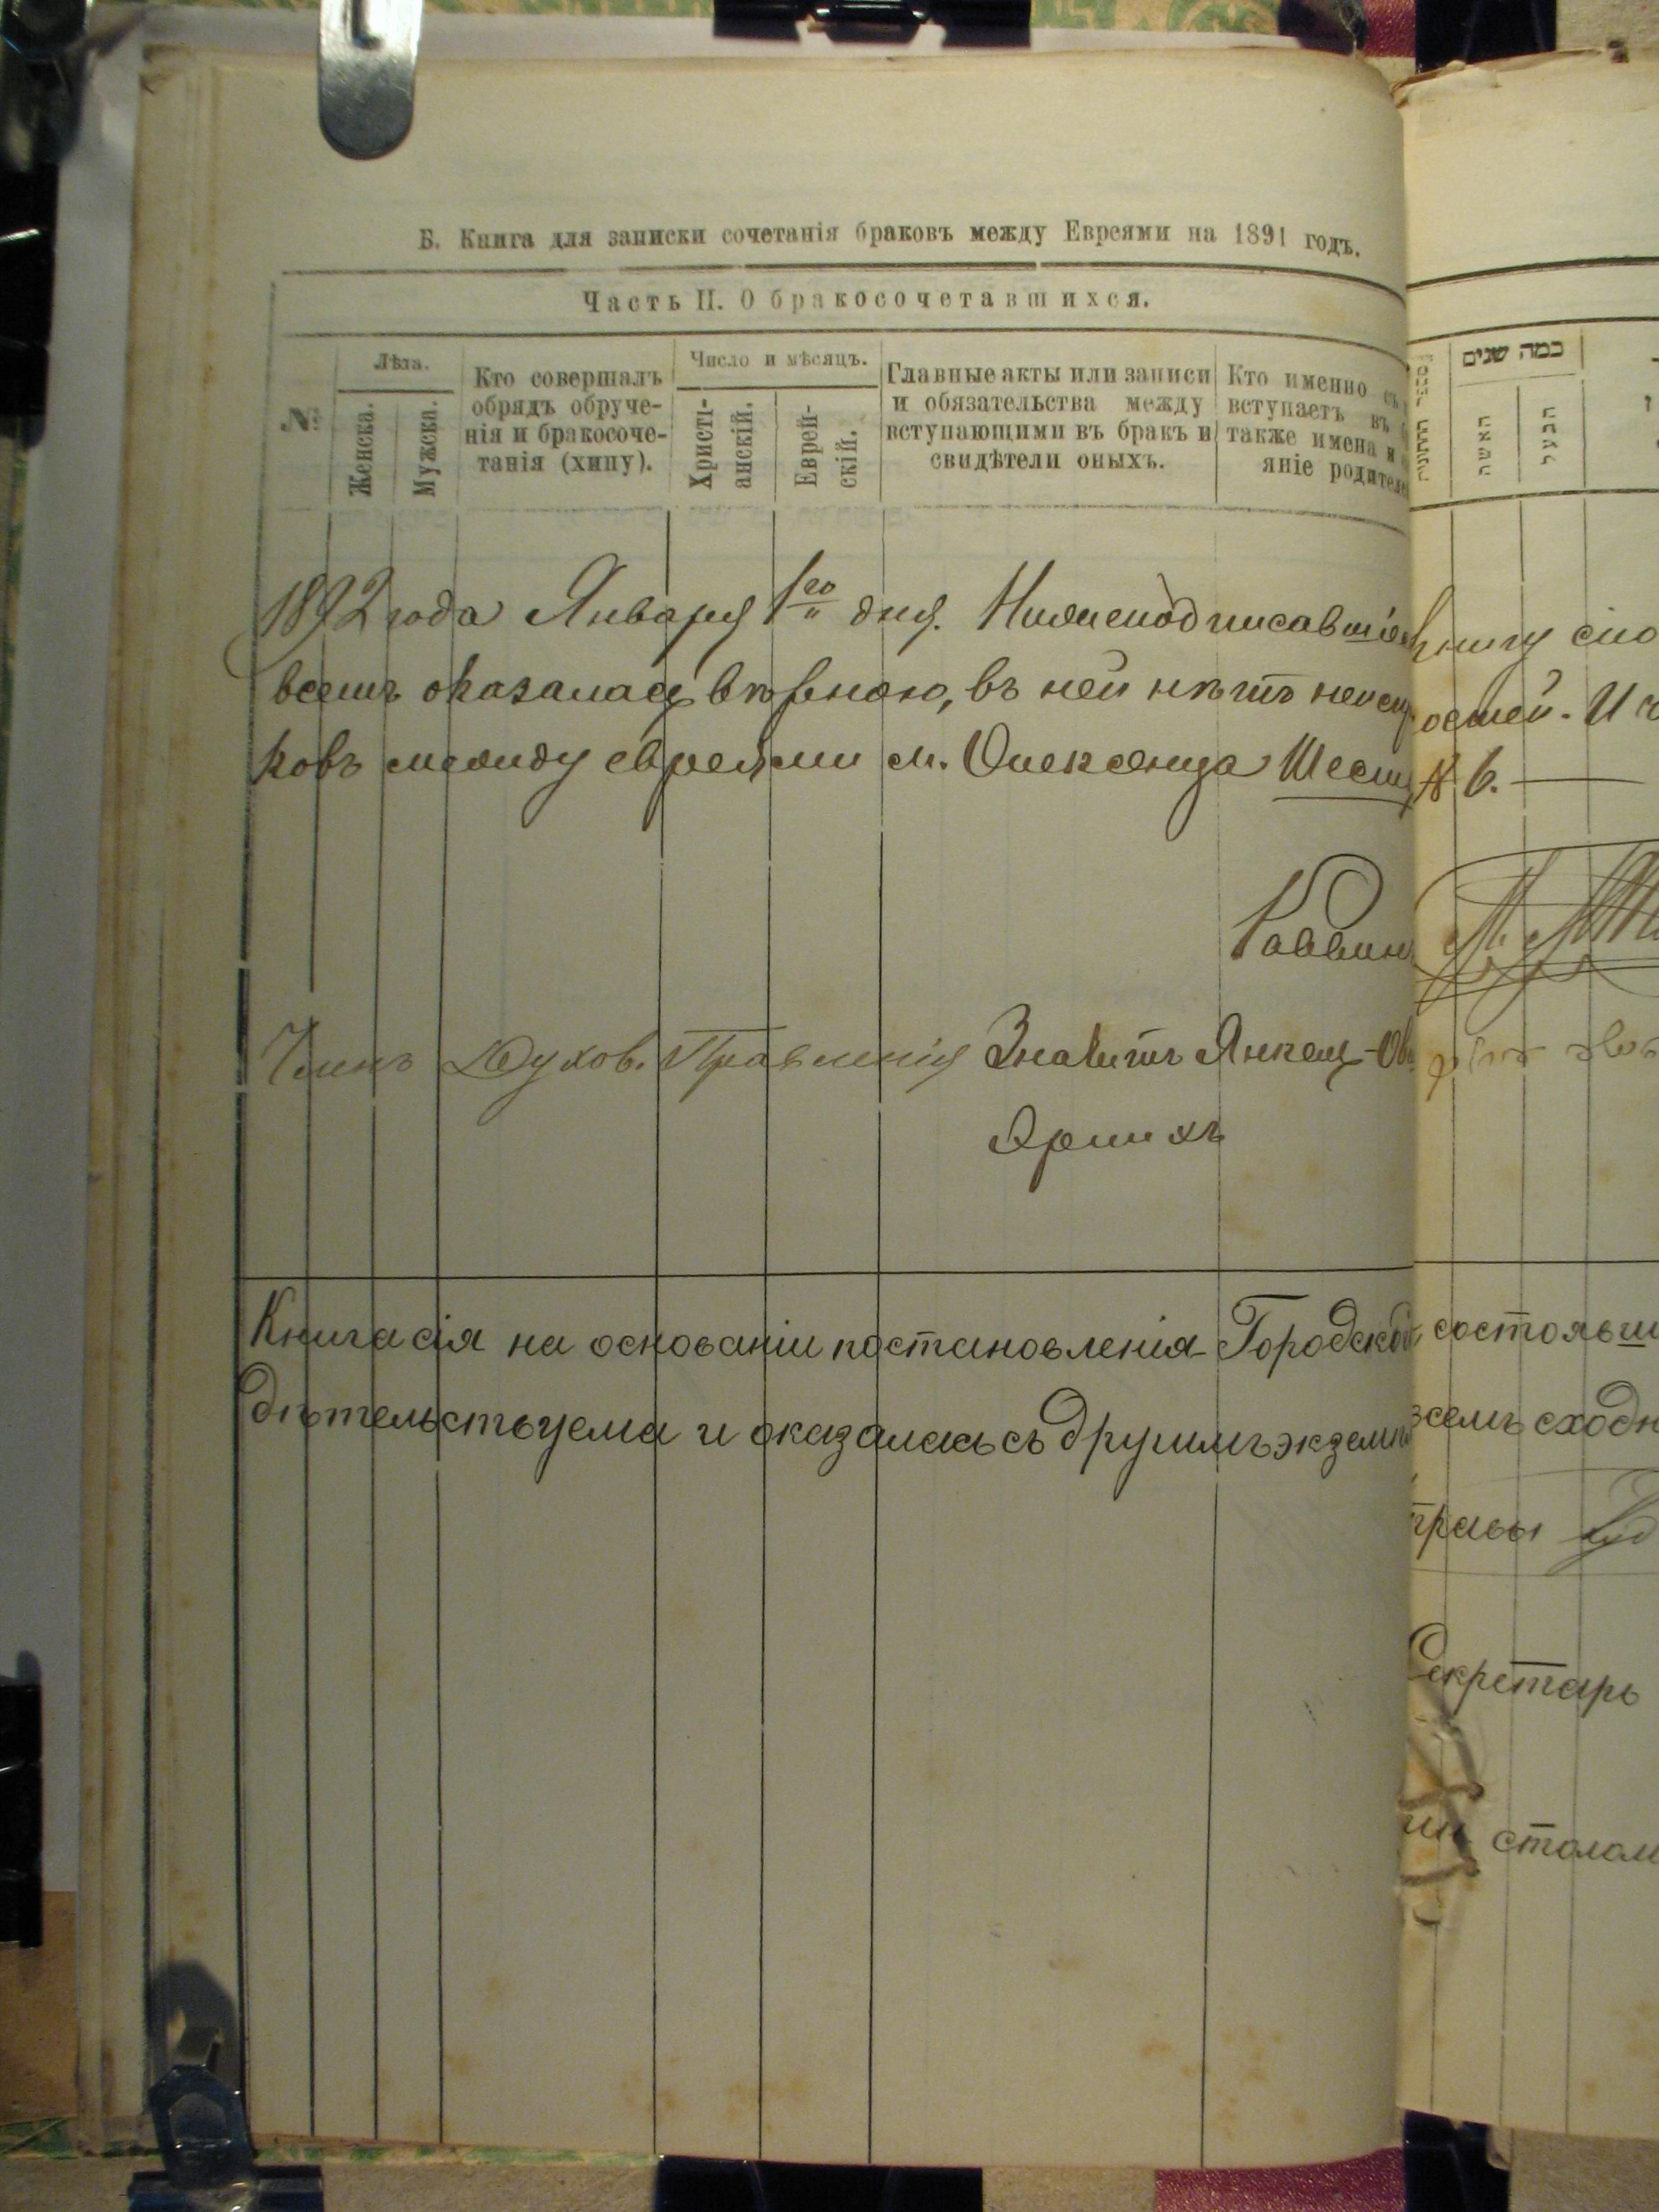 Б. Книга для записки сочетанія браковъ между Евреями на 1891 годъ.
Часть II. О бракосочетавшихся.
№
Лѣта.
Женска.
Мужска.
Кто совершалъ
обрядъ обруче-
нія и бракосоче-
танія (хипу).
Число и мѣсяцъ.
Христі-
анскій.
Еврей-
скій.
Главные акты или записи
и обязательства между
вступающими въ бракъ и
свидѣтели оныхъ.
Кто именно съ
вступаетъ въ
также имена и
яніе родителе
כמה שנים
האשה
הבעל
1892 года Января 1го дня. Нижеподписавшіеся книгу сію
всемъ оказалась вѣрною, въ ней нѣтъ остей. И
ковъ между евреями м. Олексенца Шесть № 6.
Раввинъ
Членъ Духов. Правленія Янкель
Книга сія на основаніи постановленія Городской состоявш
дѣтельствуема и оказалась съ другимъ экземп всемъ сходн
правы
Секретарь
столом